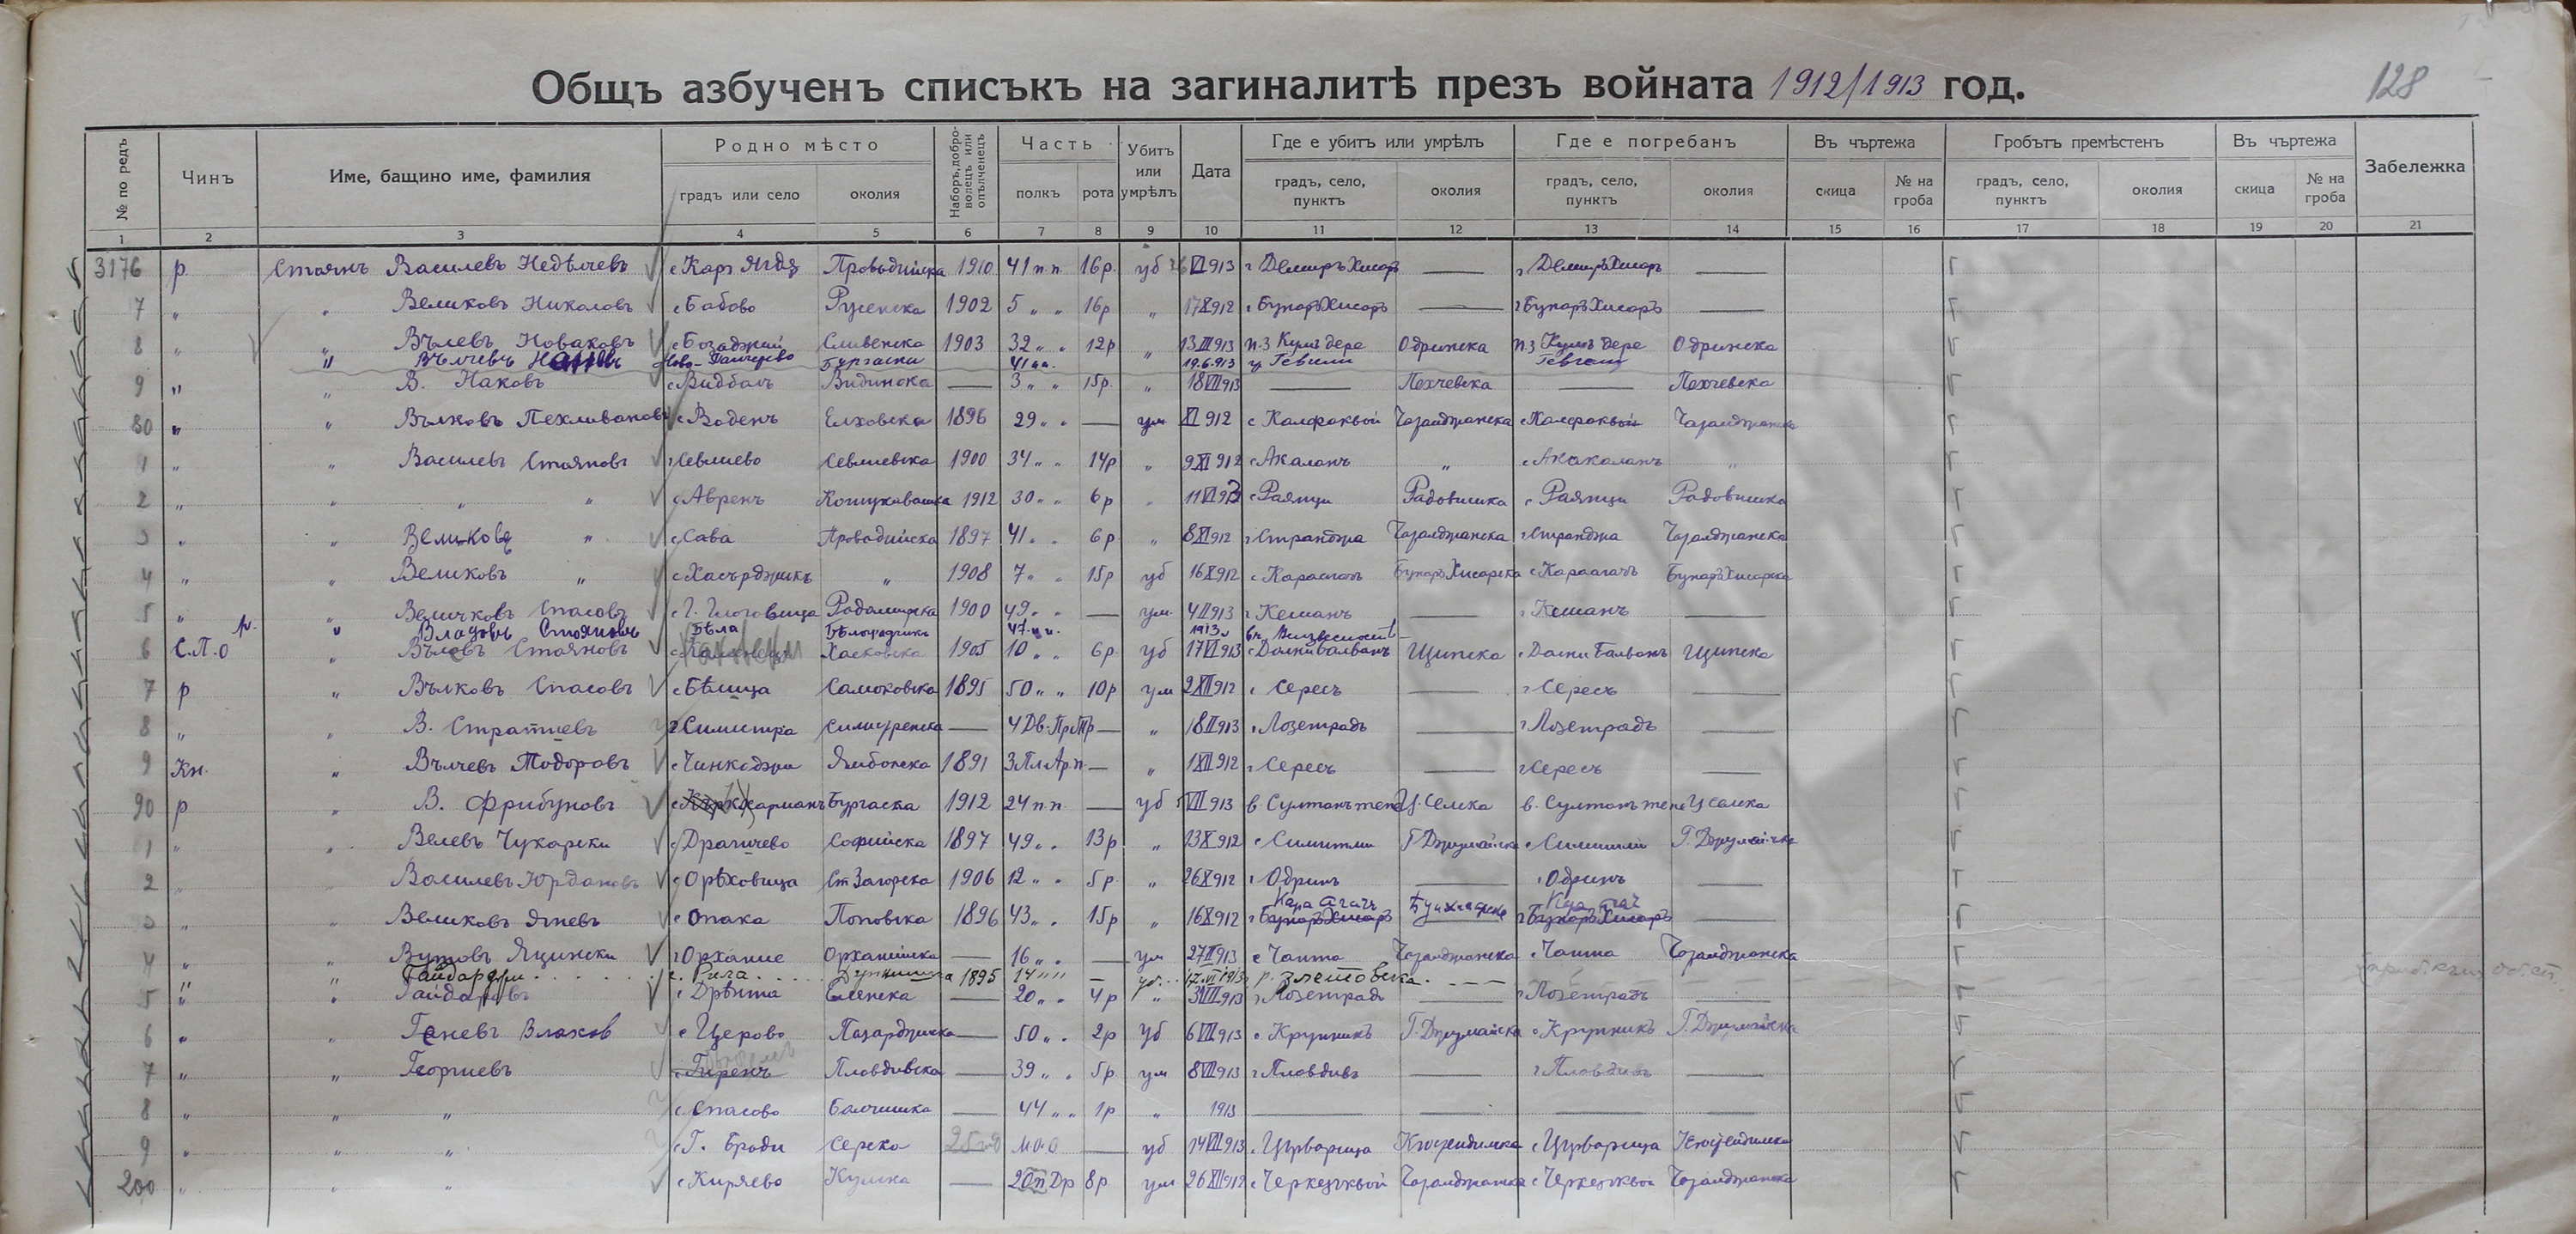 Общъ азбученъ списъкъ на загиналитѣ презъ войната 1912/1913 год.
128
№ по редъ Чинъ Име, бащино име, фамилия Родно мѣсто Наборъ, доброволецъ или опълченецъ Часть Убитъ или умрѣлъ Дата Где е убитъ или умрѣлъ Где е погребанъ Въ чъртежа Гробътъ премѣстенъ Въ чъртежа Забележка
градъ или село околия полкъ рота градъ, село, пунктъ околия градъ, село, пунктъ околия скица № на гроба градъ, село, пунктъ околия скица № на гроба
1 2 3 4 5 6 7 8 9 10 11 12 13 14 15 16 17 18 19 20 21
3176 р. Стоянъ Василевъ Недѣлчевъ с Кара Провадийска 1910 41 п.п. 16р. уб VI 913 г Демиръ Хисаръ — г Демиръ Хисаръ —
7 „ „ Великовъ Николовъ с Бабово Русенска 1902 5 „ „ 16р „ 17 X 912 г Бунаръ Хисаръ — г Бунаръ Хисаръ —
8 „ „ Вълевъ Новаковъ с Бозаджии Сливенска 1903 32 „ „ 12р „ 13 III 913 п.з Кумъ дере Одринска п.з Кумъ дере Одринска
„ Вълчевъ Ново-Паничарево Бургаски 41 п.п. 19.6.913 гр Гевгели Гевгели
9 „ „ В. Наковъ с Видболъ Видинска — 3 „ „ 15р. „ 18 VII 913 — Пехчевска — Пехчевска
80 „ „ Вълковъ Пехливановъ с Воденъ Елховска 1896 29 „ „ — ум XI 912 с Калфакьой Чаталджанска с Калфакьой Чаталджанска
1 „ „ Василевъ Стояновъ г Севлиево Севлиевска 1900 34 „ „ 14р „ 9 XI 912 с Акаланъ „ с Акаланъ „
2 „ „ „ „ с Авренъ Кошукавашка 1912 30 „ „ 6р „ 11 VI 913 с Раянци Радовишка с Раянци Радовишка
3 „ „ Великовъ „ с Сава Провадийска 1897 41 „ „ 6р „ 8 XI 912 г Странджа Чаталджанска г Странджа Чаталджанска
4 „ „ Великовъ „ с Хасърджикъ „ 1908 7 „ „ 15р уб 16 X 912 с Караагачъ Бунаръ Хисарска с Караагачъ Бунаръ Хисарска
5 „ „ Величковъ Спасовъ с Г. Глоговица Радомирска 1900 49 „ „ — ум. 4 II 913 г Кешанъ — г Кешанъ —
р. „ Владовъ Стояновъ Бѣла Бѣлоградчикъ 47 п.п. 1913 въ неизвестностъ
6 С.П.О „ Вълевъ Стояновъ Хасковска 1905 10 „ „ 6р уб 17 VI 913 с Долни Балванъ Щипска с Долни Балванъ Щипска
7 р „ Вълковъ Спасовъ с Бѣлица Самоковска 1895 50 „ „ 10р ум 2 XII 912 г Сересъ — г Сересъ —
8 „ „ В. Стратиевъ г Силистра Силистренска — 4 Дв. Пр. Тр — „ 18 II 913 г Лозенградъ — г Лозенградъ —
9 Кн. „ Вълчевъ Тодоровъ с Чинкоджи Ямболска 1891 3 Пл. Ар. п — „ 1 XII 912 г Сересъ — г Сересъ —
90 р „ В. Фрибуновъ с Бургаска 1912 24 п.п. — уб VII 913 в Султанъ тепе Ц. Селска в. Султанъ тепе Ц Селска
1 „ „ Велевъ Чукарски с Драгичево Софийска 1897 49 „ „ 13р „ 13 X 912 с Симитли Г. Джумайска с Симитли Г. Джумайска
2 „ „ Василевъ Юрдановъ с Орѣховица Ст Загорска 1906 12 „ „ 5р „ 26 X 912 г Одринъ — г Одринъ —
3 „ „ Великовъ Яневъ с Опака Поповска 1896 43 „ „ 15р „ 16 X 912 Кара агачъ г Бунаръ Хисаръ г Бунаръ Хисаръ —
4 „ „ Вутовъ Яцински г Орхание Орханийска — 16 „ „ — ум 27 II 913 с Чанта Чаталджанска с Чанта Чаталджанска
„ „ Гайдарджи с. Рила Дупнишка 1895 14 „ „ — уб. 17.VI 1913 р. Злетовска
5 „ „ Гайдаровъ с Дрѣнта Еленска — 20 „ „ 4р „ 3 III 913 г Лозенградъ — г Лозенградъ —
6 „ „ Геневъ Влахов с Церово Пазарджишка — 50 „ „ 2р Уб 6 VII 913 с Крупникъ Г. Джумайска с Крупникъ Г. Джумайска
7 „ „ Георгиевъ Пловдивска — 39 „ „ 5р ум 8 VII 913 г Пловдивъ — г Пловдивъ —
8 „ „ „ с Спасово Балчишка — 44 „ „ 1р „ 1913 — — — —
9 „ „ „ с Г. Броди Серска МОО — уб 14 VII 913 с Църварица Кюстендилска с Църварица Кюстендилска
200 „ „ „ с Киряево Кулска — 20 п Др 8р ум 26 XII 912 с Черкезкьой Чаталджанска с Черкезкьой Чаталджанска